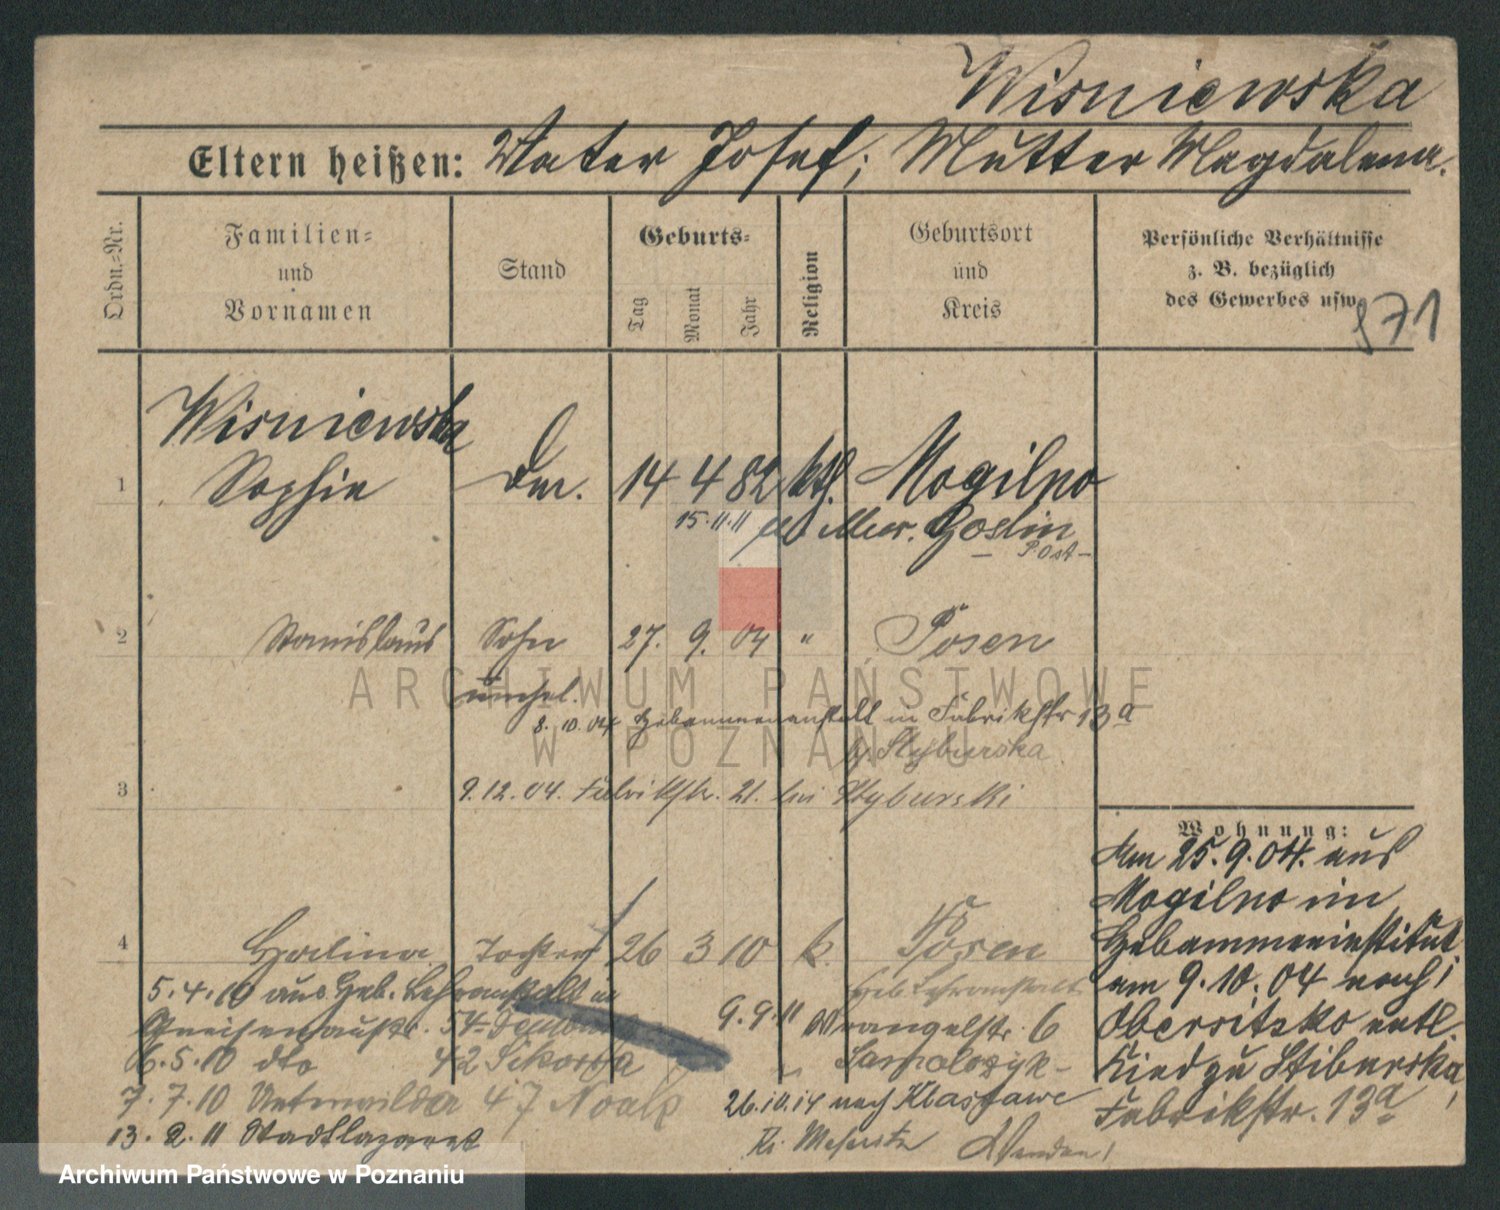 Wisniewska
Eltern heißen: Vater Josef; Mutter Magdalena.
Ordn.=Nr.
Familien=
und
Vornamen
Stand
Geburts=
Tag
Monat
Jahr
Religion
Geburtsort
und
Kreis
Persönliche Verhältnisse
z. B. bezüglich
des Gewerbes usw.
971
Wisniewska
1 Sophie 14 4 82 kth. Mogilno
15.11.11 Mur. Goslin
Post
2 Stanislaus Sohn 27. 9. 04 " Posen
unehel.
8.10.04 Hebammenanstalt in Fabrikstr 13a
b. Styburska
3 9.12.04. Fabrikstr. 21. bei Styburski
Wohnung:
Am 25.9.04. aus
Mogilno im
Hebammeninstitut
am 9.10.04 nach
Obersitzko entl.
Kind zu Stiburska,
Fabrikstr. 13a
4 Halina Tochter 26 3 10 k. Posen
5.4.10 aus Heb. Lehranstalt in
Heb Lehranstalt
Gneisenaustr. 54
9.9.11 Wrangelstr. 6
6.5.10 dto 42 Sikorska
7.7.10 Unterwilda 47 Noak
26.10.14 nach
13.2.11 Stadtlazaret
Kr. Meseritz Wenden!
ARCHIWUM PAŃSTWOWE
W POZNANIU
Archiwum Państwowe w Poznaniu